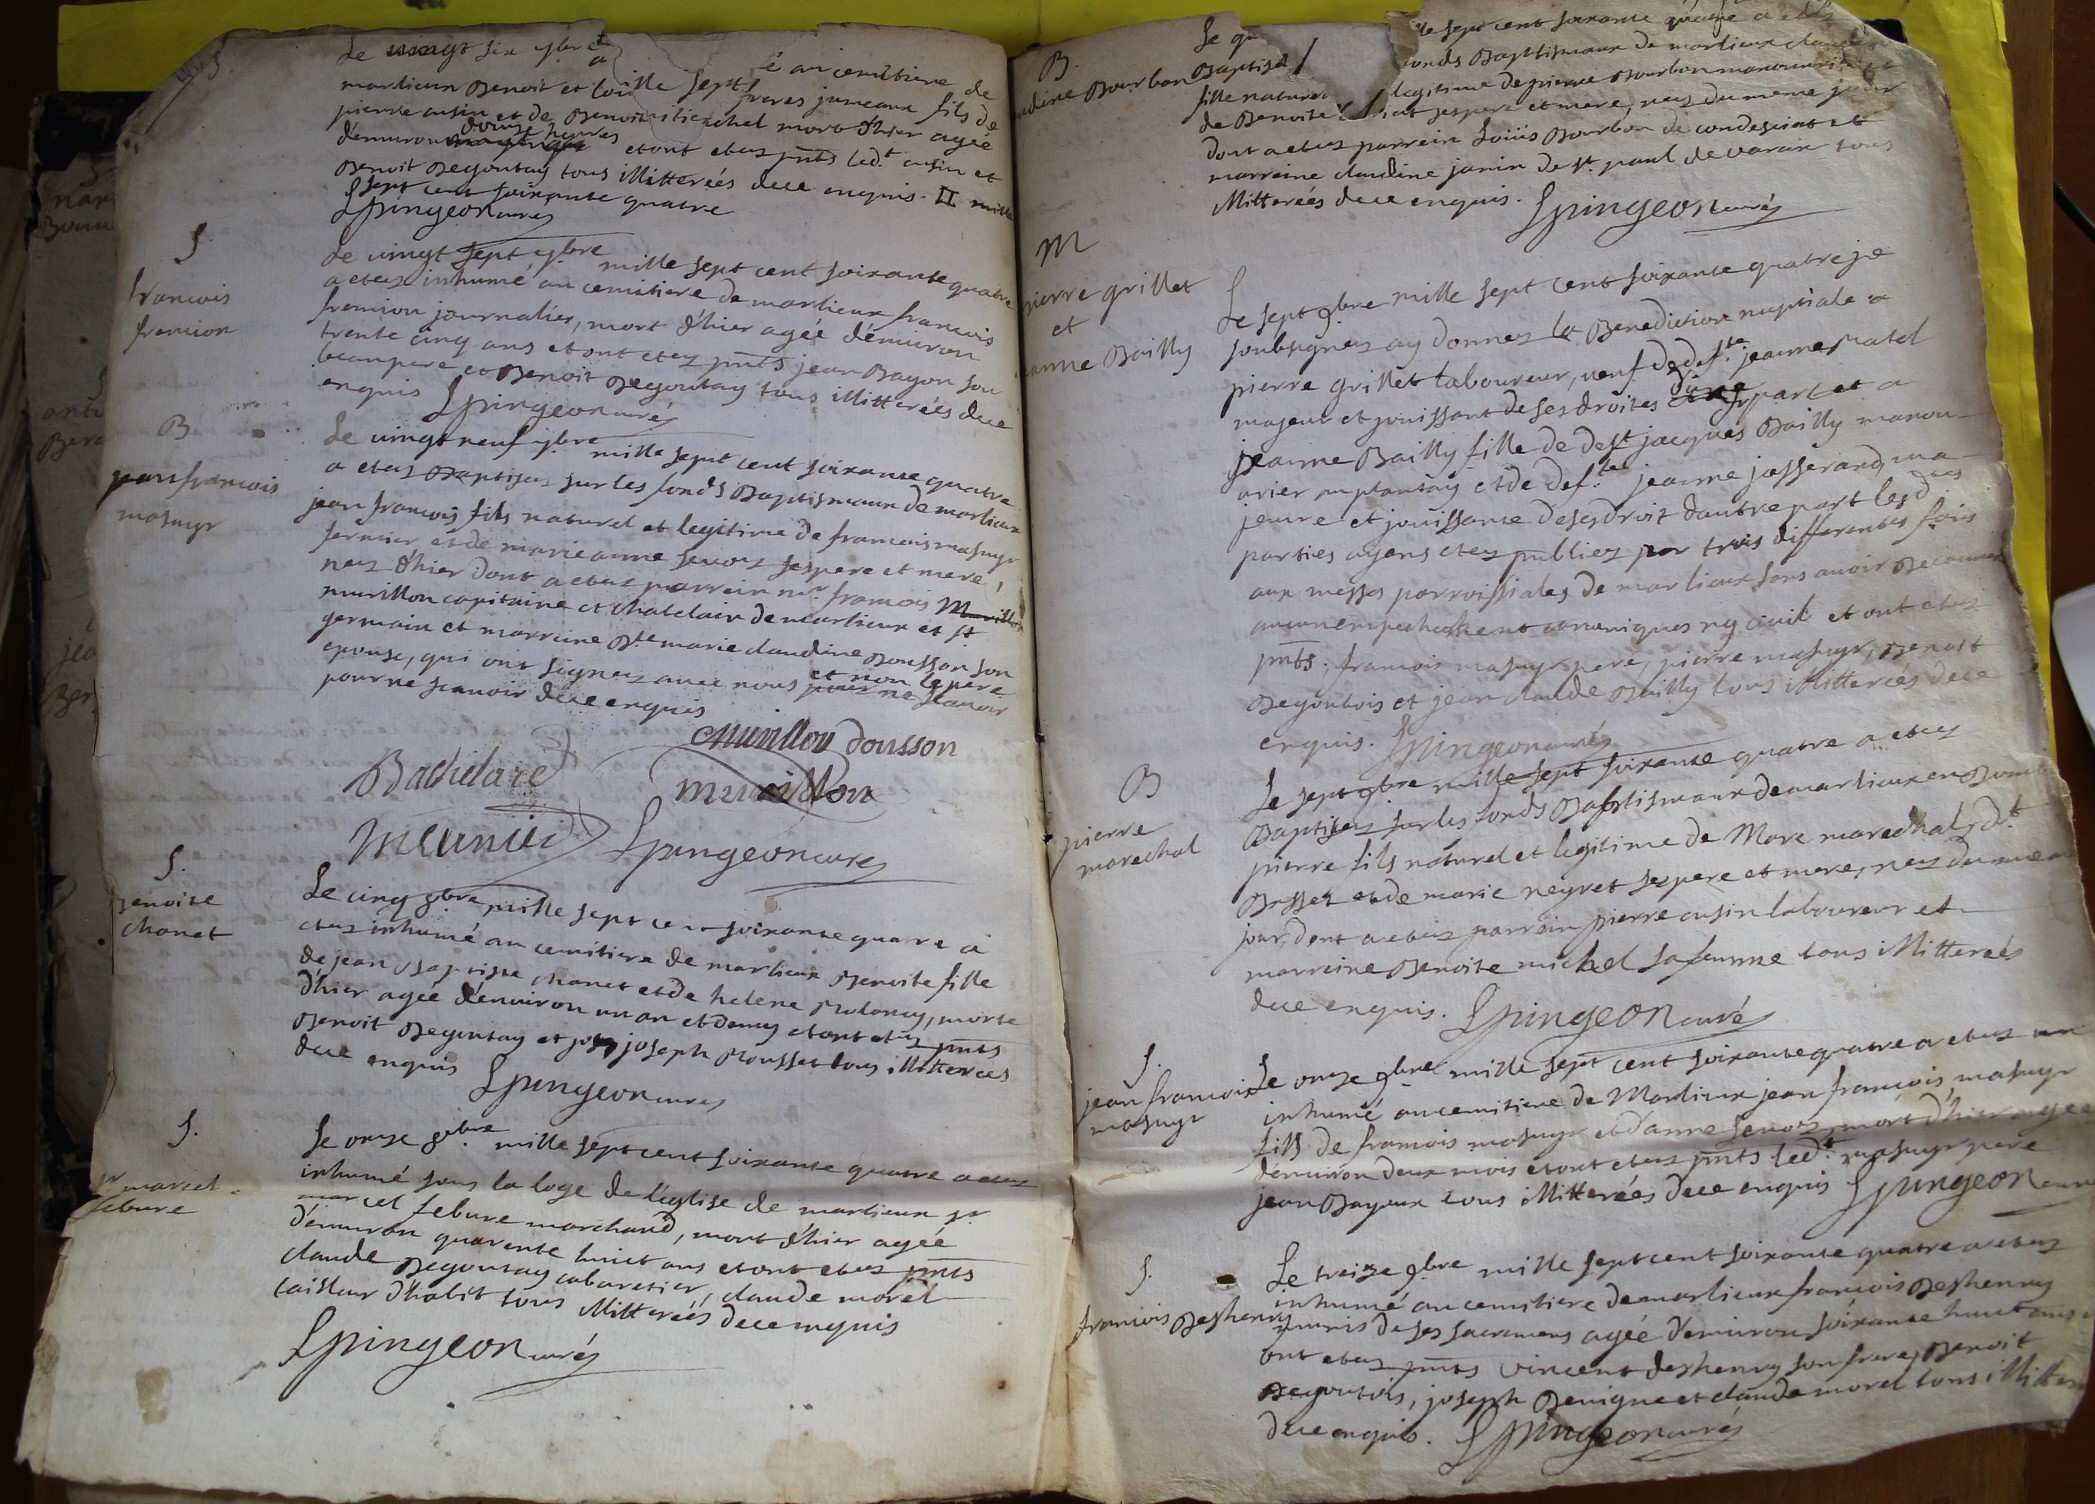 S.
Le vingt six 7bre
é au cemitiere de
marlieux Benoit et
freres jumeaux fils de
pierre cusin et de Benoite michel mort d'hier agée
d'environ douze heures et ont etez pnts led.t cusin et
Benoit Degoutay tous illitterées de ce enquis. II mille
sept cent soixante quatre
Spingeon curé
S
francois
fremion
Le vingt sept 7bre mille sept cent soixante quatre
a etez inhumé au cemitiere de marlieux francois
fremion journalier, mort d'hier agée d'environ
trente cinq ans et ont etez pnts jean Bayon son
beaupere et Benoit Degoutay tous illitterées de ce
enquis Spingeon curé
B
jean francois
masuyr
Le vingt neuf 7bre mille sept cent soixante quatre
a etez Baptisez sur les fonds Baptismaux de marlieux
jean francois fils naturel et legitime de francois masuyr
fermier et de marie anne sevoz ses pere et mere,
nez d'hier dont a etez parrein m.r francois
murillon capitaine et chatelain de marlieux et st
germain et marreine D.le marie claudine Dousson son
epouse, qui ont signez avec nous et non le pere
pour ne scavoir de ce enquis
Murillon Dousson
Bachelard
murillon
meunier Spingeon curé
S.
Benoite
chanet
Le cinq 8bre mille sept cent soixante quatre a
etez inhumé au cemitiere de marlieux Benoite fille
de jean Baptiste chanet et de helene, morte
d'hier agée d'environ un an et demy et ont etez pnts
Benoit Degoutay et joseph Mousset tous illitterées
de ce enquis Spingeon curé
S.
sr marcel
febure
Le onze 8bre mille sept cent soixante quatre a etez
inhumé sous la loge de l'eglise de marlieux sr
marcel febure marchand, mort d'hier agée
d'environ quarente huict ans et ont etez pnts
claude Degoutay cabaretier, claude morel
tailleur d'habit tous illitterées de ce enquis
Spingeon curé
B.
Bourbon
mille sept cent soixante quatre a etez
Baptisé
fonds Baptismaux de marlieux
fille
legitime de pierre Bourbon
de Benoite
ses pere et mere, nez du meme jour
dont a etez parrein Loüis Bourbon de condesiat et
marreine claudine janin de st. paul de varax tous
illitterées de ce enquis. Spingeon curé
M
pierre grillet
et
jeanne Bailly
Le sept 9bre mille sept cent soixante quatre je
soubsignez ay donnez la Benediction nuptiale a
pierre grillet laboureur, veuf de def.te jeanne
majeur et jouissant de ses droites d'une part et a
jeanne Bailly fille de deft jacques Bailly manou-
vrier au plantay et de def.te jeanne josserand, ma-
jeure et joüissante de ses droit d'autre part les d'ues
parties ayans etez publiez par trois differentes fois
aux messes parroissiales de marlieux sans avoir Decouvert
aucun empechement canoniques ny civil et ont etez
pnts. francois masuyr pere, pierre masuyr, Benoit
Degoutois et jean claude Bailly tous illitterées de ce
enquis. Spingeon curé
B
pierre
marechal
Le sept 9bre mille sept soixante quatre a etez
Baptisez sur les fonds Baptismaux de marlieux en Dombes
pierre fils naturel et legitime de Marc marechal, d.t
Bosset et de marie neyret ses pere et mere, nez du meme
jour, dont a etez parrein pierre cusin laboureur et
marreine Benoite michel sa femme tous illitterées
de ce enquis. Spingeon curé
S.
jean francois
masuyr
Le onze 9bre mille sept cent soixante quatre a etez
inhumé au cemitiere de Marlieux jean francois masuyr
fils de francois masuyr et d'anne sevoz, mort d'hier agée
d'environ deux mois et ont etez pnts led.t masuyr pere
jean Bayoux tous illitterées de ce enquis Spingeon curé
S.
francois Deshenry
Le treize 9bre mille sept cent soixante quatre a etez
inhumé au cemitiere de marlieux francois Deshenry
munis de ses sacremens agée d'environ soixante huit ans
ont etez pnts vincent deshenry son frere, Benoit
Degoutois, joseph Benigne et claude morel tous
de ce enquis. Spingeon curé